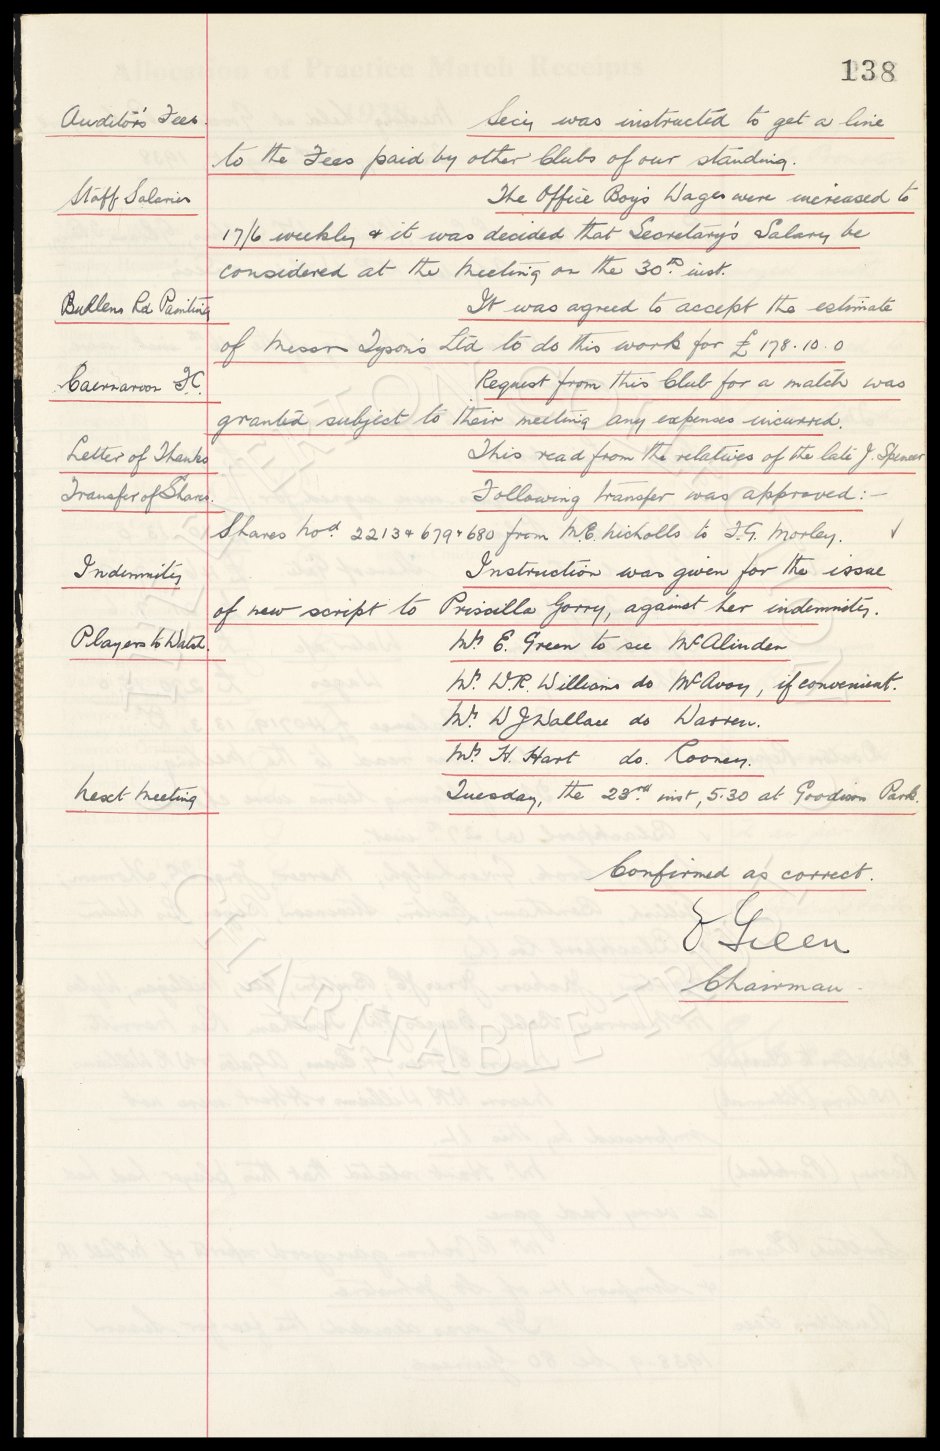 138
Auditor's Fees. Secy was instructed to get a line
to the Fees paid by other Clubs of our standing.
Staff Salaries The Office Boy's Wages were increased to
17/6 weekly & it was decided that Secretary's Salary be
considered at the Meeting on the 30th inst.
Bullens Rd Painting It was agreed to accept the estimate
of Messrs Tyson's Ltd to do this work for £178.10.0
Caernarvon F.C. Request from this Club for a match was
granted subject to their meeting any expenses incurred.
Letter of Thanks This read from the relatives of the late J. Spencer
Transfer of Shares. Following transfer was approved:-
Shares Nos. 2213 & 679 & 680 from M.E. Nicholls to F.G. Morley. ✓
Indemnity Instruction was given for the issue
of new script to Priscilla Gorry, against her indemnity.
Players to Watch. Mr. E. Green to see McAlinden
Mr. W.R. Williams do McAvoy, if convenient.
Mr. W J Wallace do Warren.
Mr. H. Hart do. Rooney.
Next Meeting Tuesday, the 23rd inst, 5.30 at Goodison Park.
Confirmed as correct.
E Green
Chairman